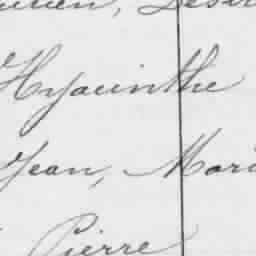 Hyacinthe
Jean, Mari
Pierre